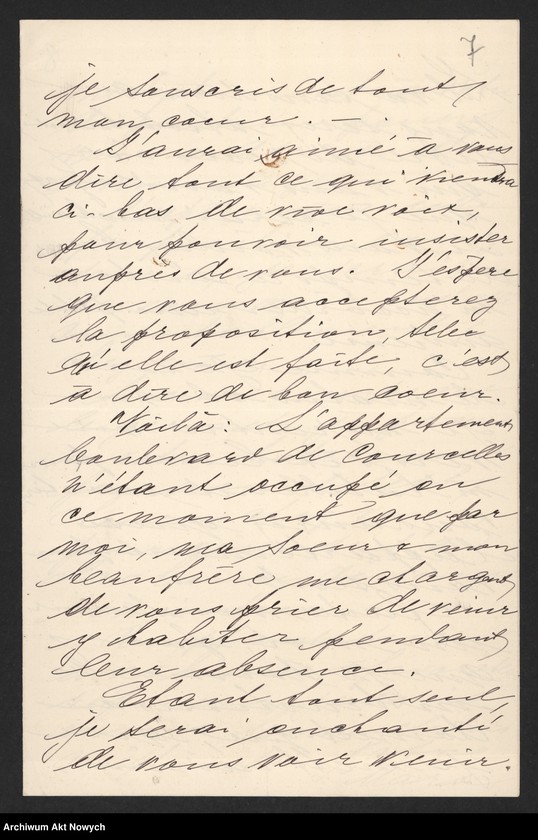 7
je souscris de tout
mon coeur. — .
J'aurai aimé à vous
dire tout ce qui viendra
ci-bas de vive voix,
pour pouvoir insister
auprès de vous. J'éspère
que vous accepterez
la proposition, telle
qu'elle est faite, c'est
à dire de bon coeur.
Voilà: L'appartement
boulevard de Courcelles
n'étant occupé en
ce moment que par
moi, ma soeur & mon
beaufrère me chargent
de vous prier de venir
y habiter pendant
leur absence.
Etant tout seul,
je serai enchanté
de vous voir venir.
Archiwum Akt Nowych